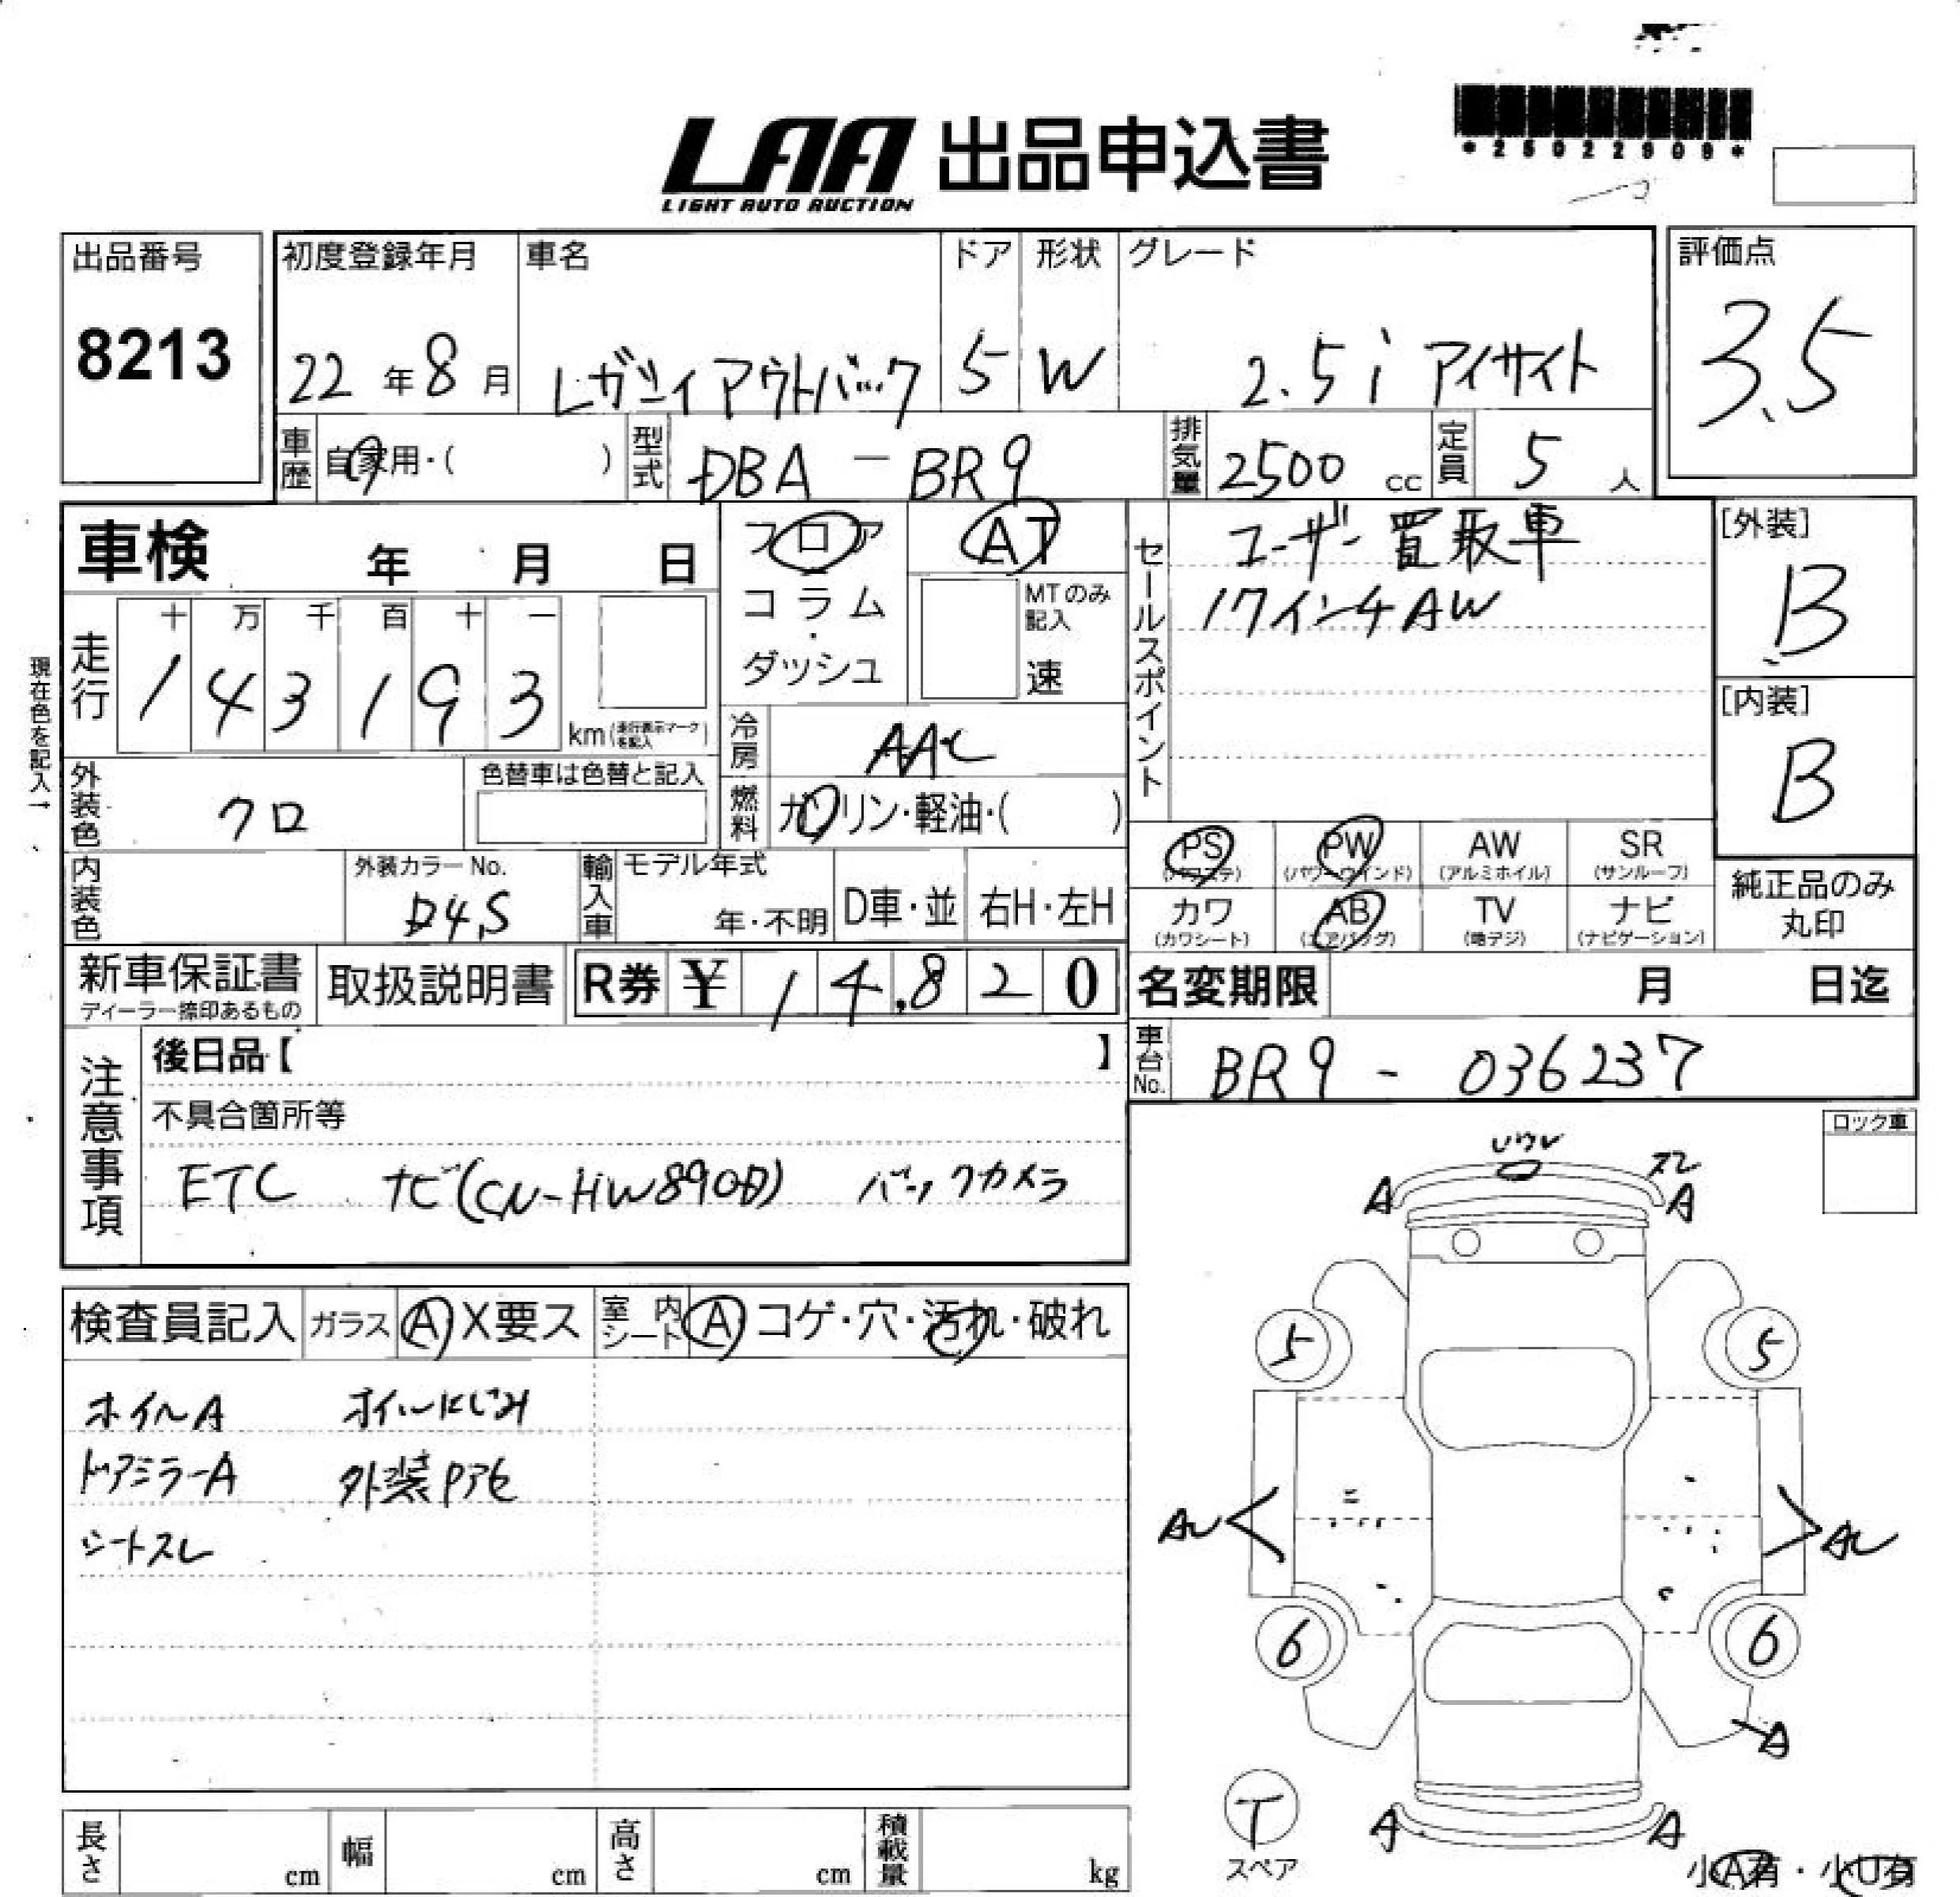 LAA 出品申込書
LIGHT AUTO AUCTION
*25022909*
出品番号
8213
初度登録年月
22年8月
車名
レガシィアウトバック
ドア
5
形状
W
グレード
2.5i アイサイト
評価点
3.5
車歴 自家用・( )
型式 DBA-BR9
排気量 2500 cc
定員 5 人
車検 年 月 日
フロア
コラム・ダッシュ
AT
MTのみ記入
速
セールスポイント
ユーザー買取車
17インチAW
[外装]
B
[内装]
B
現在色を記入→
走行
十 万 千 百 十 一
1 4 3 1 9 3
km(走行表示マークを記入)
冷房 AAC
燃料 ガソリン・軽油・( )
外装色 クロ
色替車は色替と記入
内装色
外装カラーNo.
D4S
輸入車
モデル年式
年・不明
D車・並
右H・左H
PS (パワステ)
PW (パワーウインド)
AW (アルミホイル)
SR (サンルーフ)
カワ (カワシート)
AB (エアバッグ)
TV (地デジ)
ナビ (ナビゲーション)
純正品のみ丸印
新車保証書
ディーラー捺印あるもの
取扱説明書
R券 ¥ 14,820
名変期限 月 日迄
車台No. BR9-036237
注意事項
後日品【 】
不具合箇所等
ETC ナビ(CN-HW890D) バックカメラ
ロック車
検査員記入
ガラス A X要ス
室内シート A コゲ・穴・汚れ・破れ
ホイルA オイルにじみ
ドアミラーA 外装アセ
シートスレ
A
スレ
A
5
5
AU
AU
6
6
A
T
スペア
A
A
小A有・小U有
長さ cm
幅 cm
高さ cm
積載量 kg